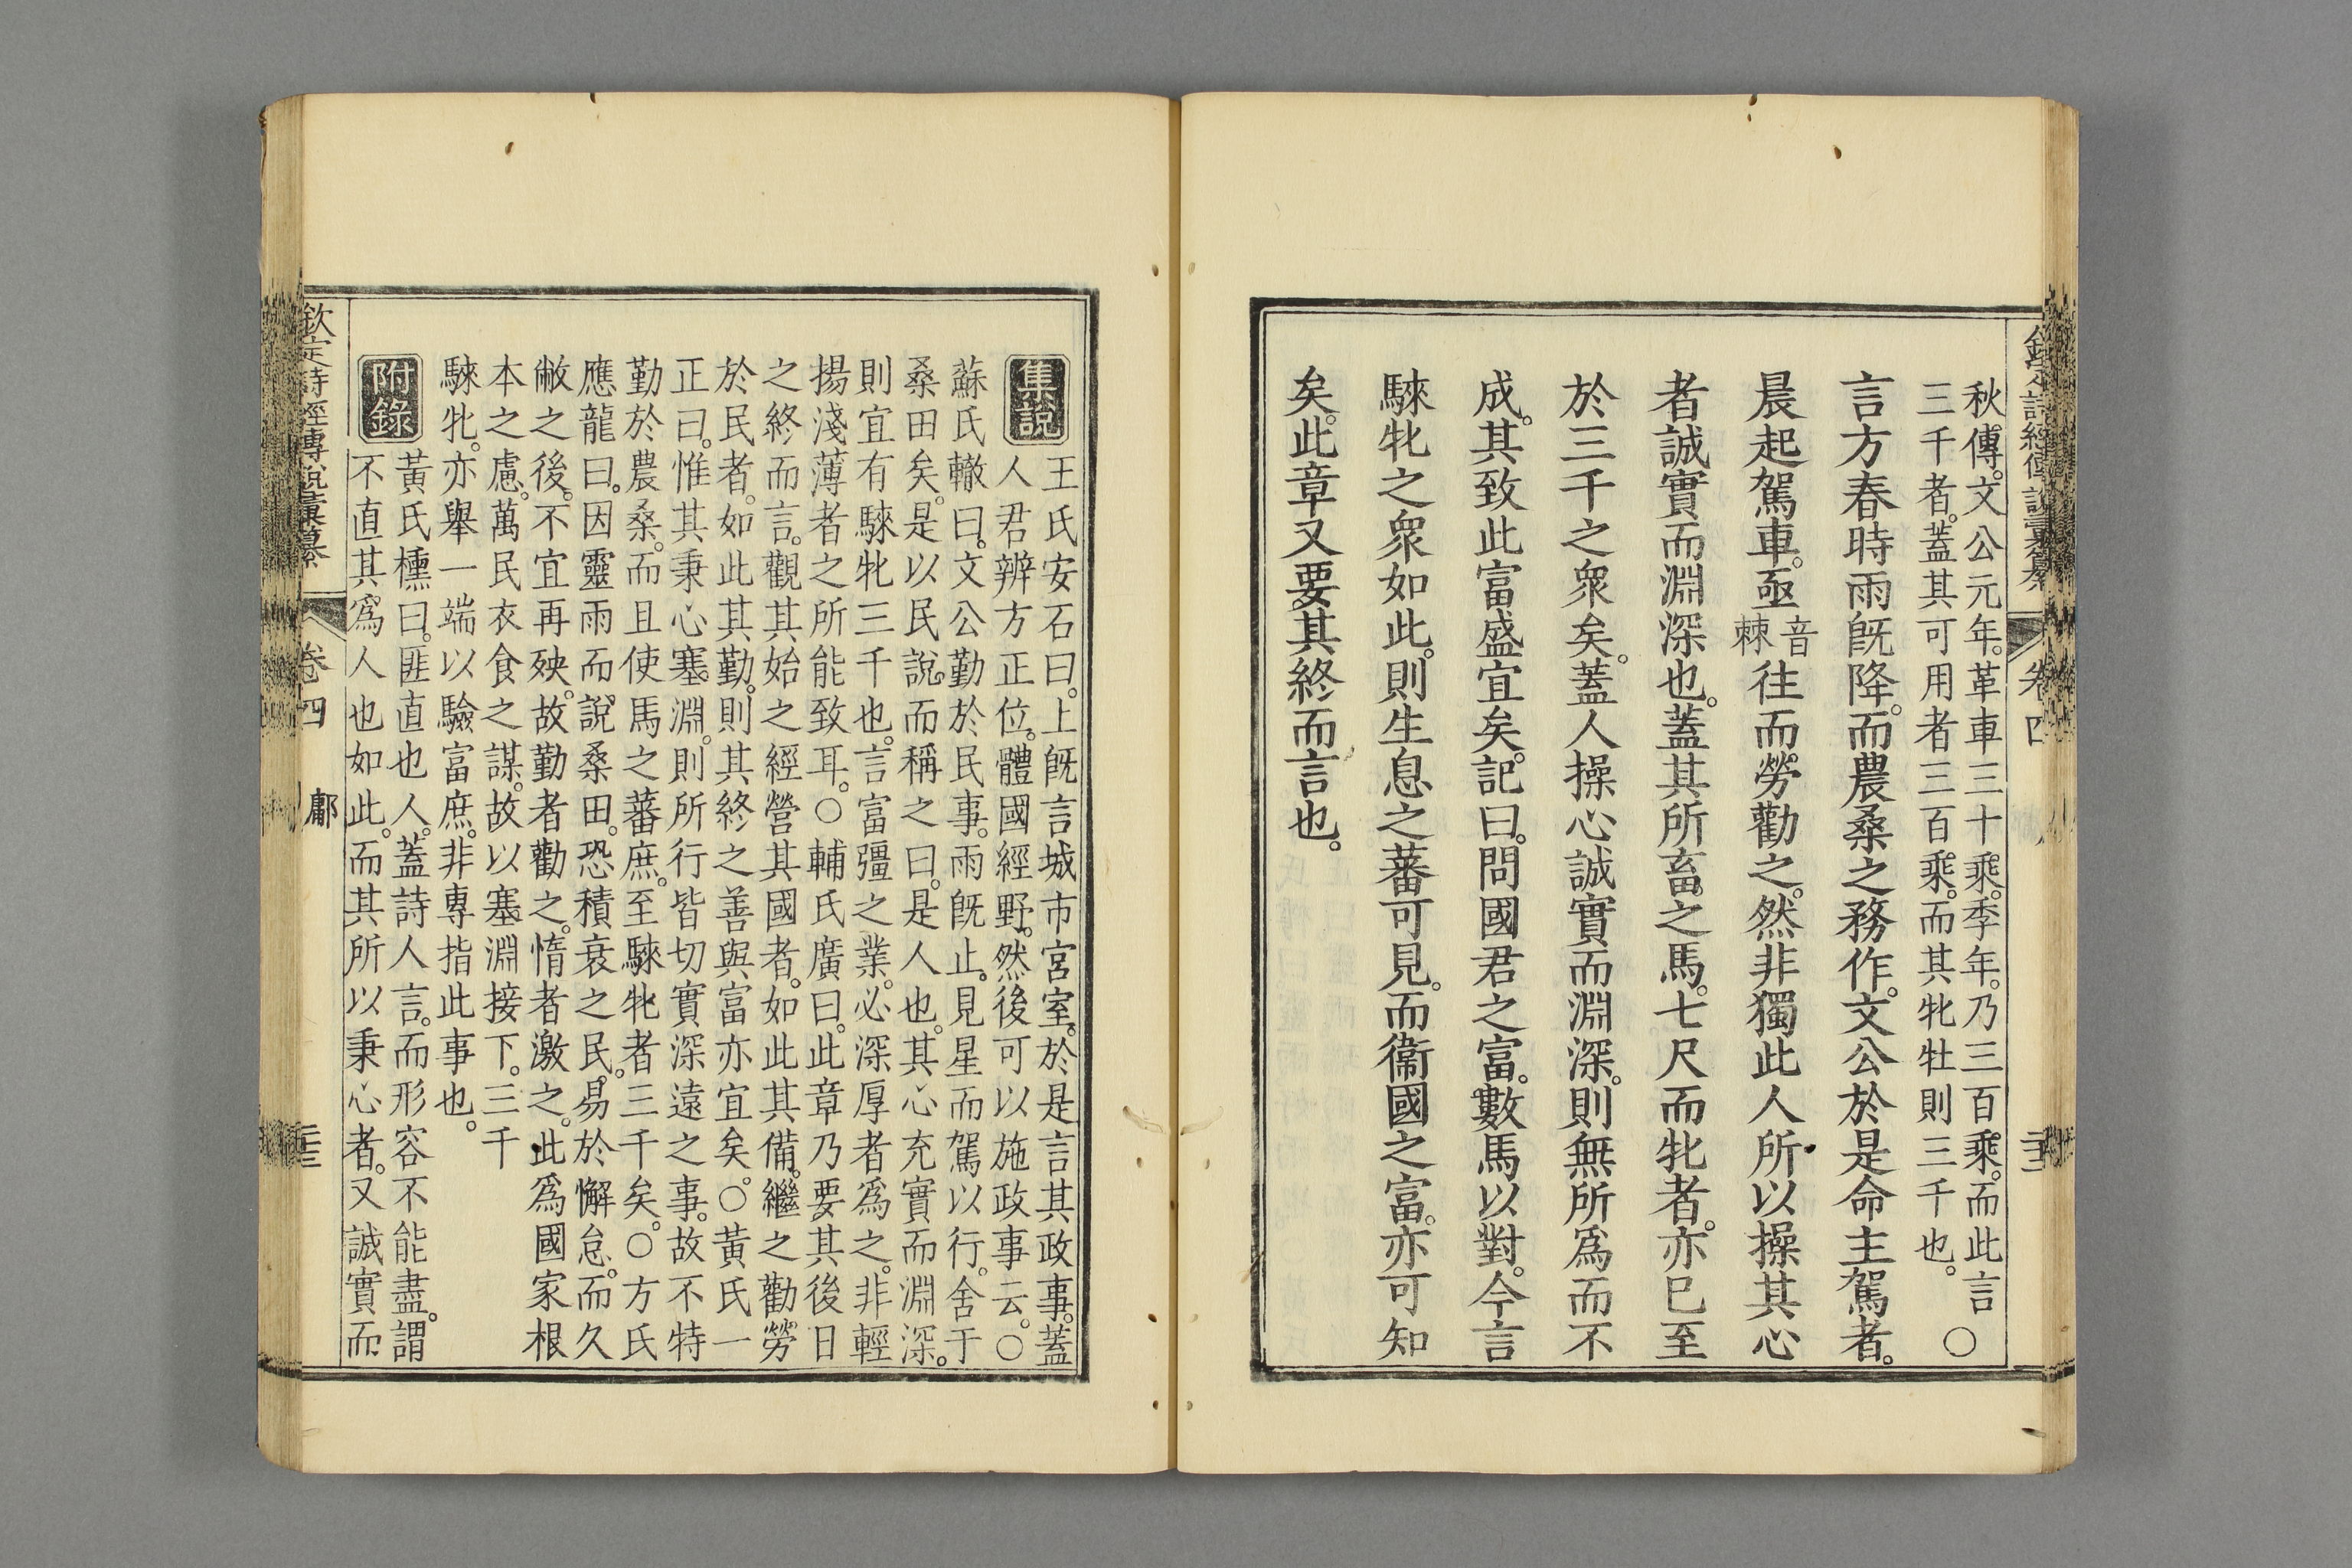 秋傳。文公元年。革車三十乘。季年。乃三百乘。而此言
三千者。蓋其可用者三百乘。而其牝牡則三千也。○
言方春時雨旣降。而農桑之務作。文公於是命主駕者。
晨起駕車。亟音棘往而勞勸之。然非獨此人所以操其心
者誠實而淵深也。蓋其所畜之馬。七尺而牝者。亦已至
於三千之衆矣。蓋人操心誠實而淵深。則無所爲而不
成。其致此富盛宜矣。記曰。問國君之富。數馬以對。今言
騋牝之衆如此。則生息之蕃可見。而衞國之富。亦可知
矣。此章又要其終而言也。
集說
王氏安石曰。上旣言城市宮室。於是言其政事。蓋
人君辨方正位。體國經野。然後可以施政事云。○
蘇氏轍曰。文公勤於民事。雨旣止。見星而駕以行。舍于
桑田矣。是以民說。而稱之曰。是人也。其心充實而淵深。
則宜有騋牝三千也。言富彊之業。必深厚者爲之。非輕
揚淺薄者之所能致耳。○輔氏廣曰。此章乃要其後日
之終而言。觀其始之經營其國者。如此其備。繼之勸勞
於民者。如此其勤。則其終之善與富亦宜矣。○黃氏一
正曰。惟其秉心塞淵。則所行皆切實深遠之事。故不特
勤於農桑。而且使馬之蕃庶。至騋牝者三千矣。○方氏
應龍曰。因靈雨而說桑田。恐積衰之民。易於懈怠。而久
敝之後。不宜再殃。故勤者勸之。惰者激之。此爲國家根
本之慮。萬民衣食之謀。故以塞淵接下。三千
騋牝。亦舉一端以驗富庶。非專指此事也。
附錄
黃氏櫄曰。匪直也人。蓋詩人言。而形容不能盡。謂
不直其爲人也如此。而其所以秉心者。又誠實而
欽定詩經傳說彙纂
卷四
鄘